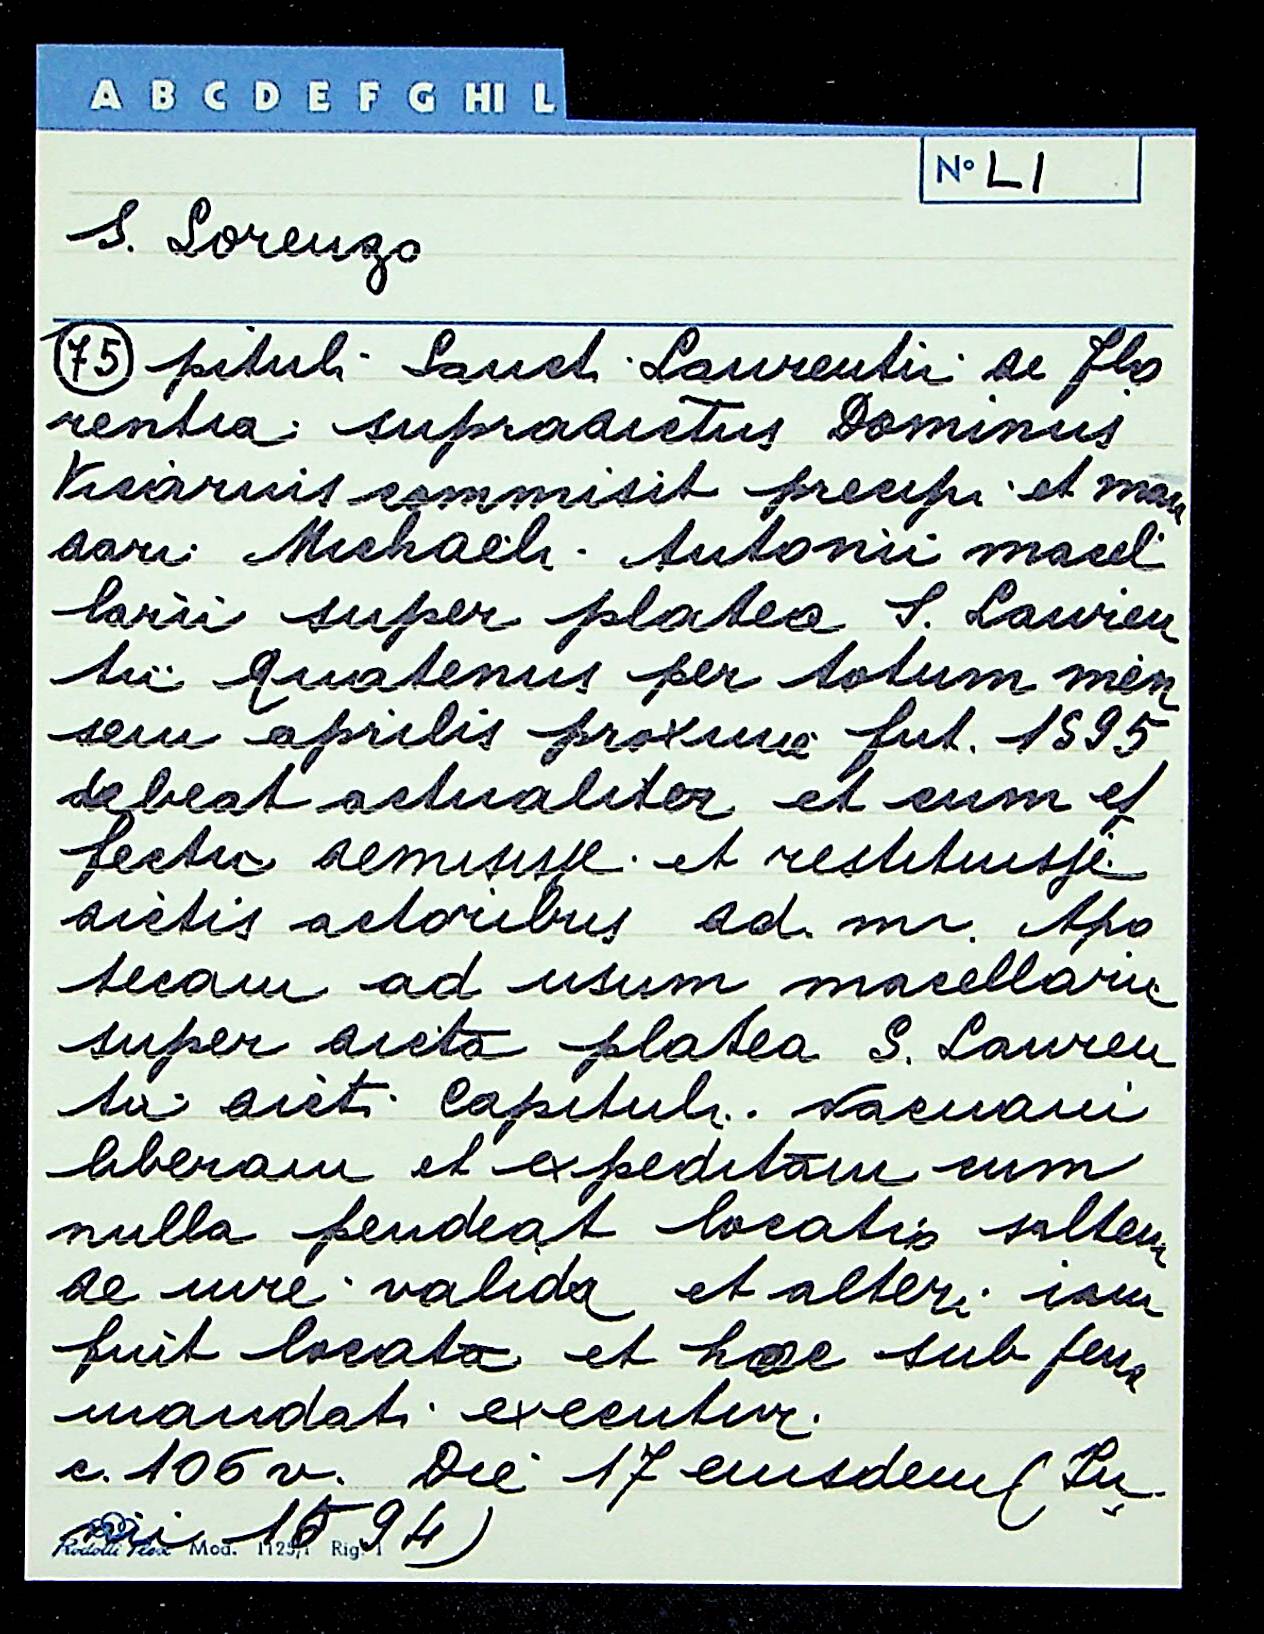 A B C D E F G HI L
Nº LI
S. Lorenzo
75 pituli Sancti Laurentii de Flo
rentia supradictus Dominus
Vicarius commisit precipi et man
dari Michaeli Antonii macel
larii super platea S. Lauren
tii quatenus per totum men
sem aprilis proxime fut. 1595
debeat actualiter et cum ef
fectu demisisse et restituisse
dictis actoribus ad. mr. Apo
tecam ad usum macellarii
super dicta platea S. Lauren
tii dicti Capituli. vacuam
liberam et expeditam cum
nulla pendeat locatio saltem
de iure valida et alteri iam
fuit locata et hoc sub pena
mandati executivi.
c. 106 v. Die 17 eiusdem (Iu
nii 1594)
Mod. 1125/1 Rig. 1